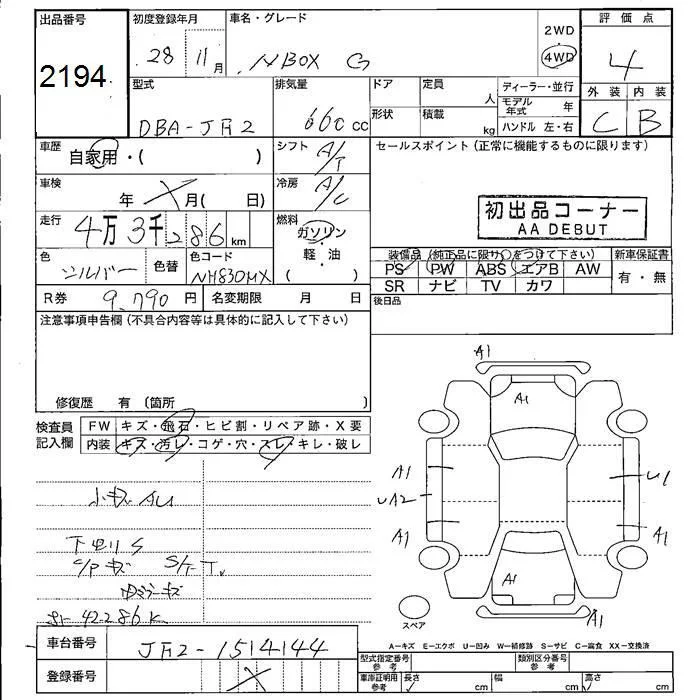 出品番号
2194
初度登録年月
28 11月
車名・グレード
NBOX G
2WD
4WD
評価点
4
外装 内装
C B
型式
DBA-JF2
排気量
660 cc
ドア
定員
人
形状
積載
kg
ディーラー・並行
モデル年式 年
ハンドル 左・右
車歴
自家用・( )
シフト
A/T
車検
年 月( 日)
冷房
A/C
走行
4万 3千286km
燃料
ガソリン
軽・油
( )
色
シルバー
色替
色コード
NH830MX
R券 9,790 円
名変期限 月 日
セールスポイント(正常に機能するものに限ります)
初出品コーナー
AA DEBUT
装備品(純正品に限り○をつけて下さい)
新車保証書
PS PW ABS エアB AW
有・無
SR ナビ TV カワ
後日品
注意事項申告欄(不具合内容等は具体的に記入して下さい)
修復歴 有(箇所 )
検査員
記入欄
FW キズ・飛石・ヒビ割・リペア跡・X要
内装 キズ・汚レ・コゲ・穴・スレ・キレ・破レ
小キズ AU
下廻リS
C/Pキズ S/T-T
ミラーキズ
42286K
A1
A1
A1
U1
UA2
A1
A1
A1
A1
スペア
A-キズ E-エクボ U-凹み W-補修跡 S-サビ C-腐食 XX-交換済
車台番号 JF2-1514144
登録番号
型式指定番号
参考
類別区分番号
参考
車庫証明用
参考
長さ cm
幅 cm
高さ cm